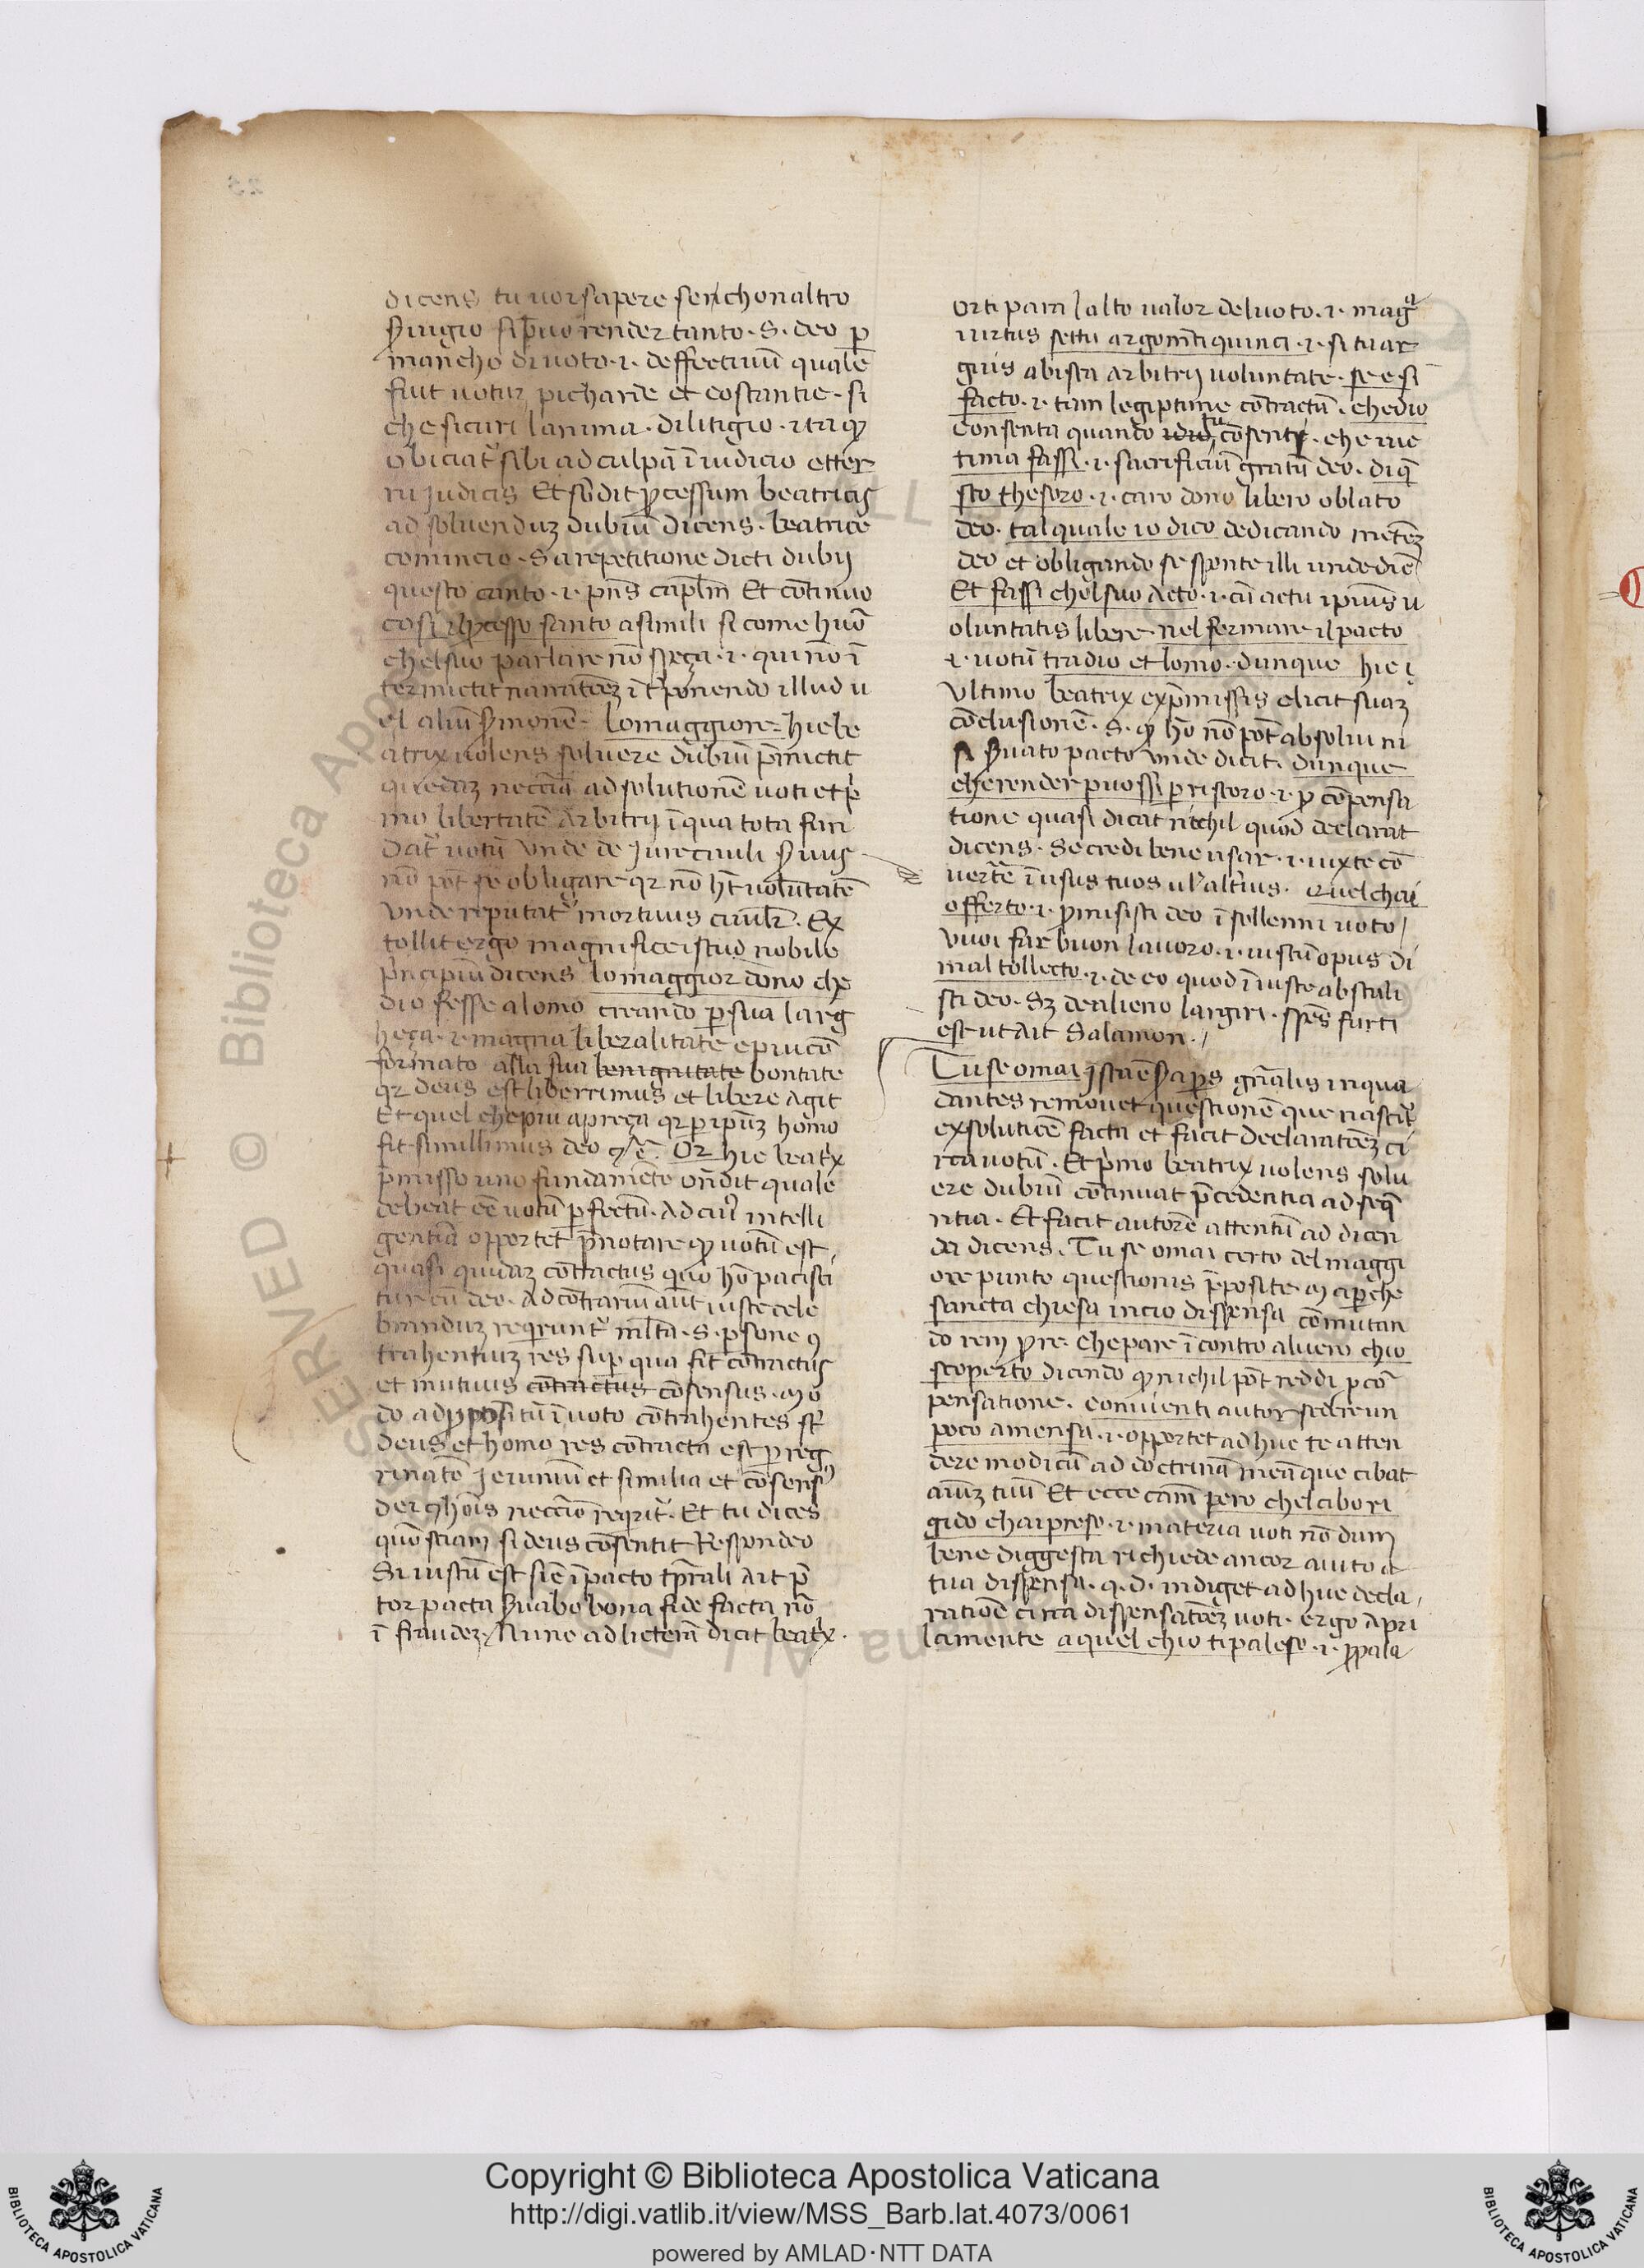 dicens tu uor sapere sen chon altro
s̄uigio si puo render tanto · S · deo p̄
mancho di uoto · i · deffectiuū quale
fuit uotuȝ picharde et costantie · si
che sicuri lanima · di litigio · ita qꝫ
obiciat᷑ sibi ad culpā ī iudicio etter
ni judicis Et sb̄dit ꝓcessum beatricis
ad soluenduȝ dubiū dicens · beatrice
comincio · S a repetitione dicti dubij
questo canto · i · pn̄s capl̄m Et cōtinuo
cosi il ꝓcesso santo a simili si come huō
chel suo parlare nō speça · i · qui nō ī
termictit narratōeȝ īt̄ponendo illud u
el aliū s̄monē · lo maggiore = hic be
atrix uolens soluere dubiū p̄mictit
quedaȝ neccīa ad solutionē uoti et p̄
mo libertatē arbitrij ī qua tota fun
dat᷑ uotū Vnde de jure ciuili s̄uus
nō pōt se obligare qr nō hēt uolūtatē
Vnde reputat᷑ mortuus ciuilr̄ · Ex
tollit ergo magnifice istud nobile
pͥncipiū dicens lo maggior dono che
dio fesse a lomo creando ꝑ sua larg
heça · i · magna liberalitate e piu cō
formato alla sua benignitate bontate
qr deus est liberrimus et libere agit
Et quel che piu apreça qr ꝑ ipūȝ homo
fit simillimus deo Or hic beatͥx
p̄misso uno fundamēto on̄dit quale
debeat eē uotū ꝑfectū · Ad cuiꝰ intelli
gentiā opportet p̄notare qꝫ uotū est
quasi quidaȝ cōtractus quō hō pacisci
tur cū deo · Ad cōtractū aūt iuste cele
branduȝ reqrunt᷑ ml̄ta · S · ꝑsone ꝯ
trahentiuȝ res suꝑ qua fit cōtractus
et mutuus cōtractus cōsensus · Mo
do ad ꝓpositū ī uoto cōtrahentes st̄
deus et homo res cōtracta est pereg
rinatō jeiuniū et similia et cōsensꝰ
dei ꝯ hoīs neccīo reqrit᷑ · Et tu dices
quō sciam si deus cōsentit Respondeo
Si iustū est sic ī pacto tp̄rali ait p̄
tor pacta s̄uabo bona fide facta nō
ī fraudeȝ · Nunc ad licterā dicit beatͥx ·
orti parra lalto ualor del uoto · i · magᵃ
uirtus settu argomēti quinci · i · si tu ar
guis ab ista arbitrij uoluntate · se e si
facto · i · tam legiptime cōtractū · che dio
consenta quando tu cōsenti · che uic
tima fassi · i · sacrificiū gratū deo · di q̄
sto thesoro · i · caro dono libero oblato
deo · tal quale io dico dedicando mētēȝ
deo et obligando se sponte illi unde dic̄
Et fassi chol suo acto · i · cū actu ipius u
oluntatis libere · nel fermare il pacto
i · uotū tra dio et lomo · dunque hic ī
Vltimo beatrix ex p̄missis elicit suaȝ
cōclusionē · S · qꝫ hō nō pōt absolui ni
si s̄uato pacto vnde dicit · dunque
che render puossi ꝑ ristoro · i · ꝓ cōpensa
tione quasi dicat nichil quod declarat
dicens · Se credi bene usar · i · iuxte cō
uertē ī usus tuos ul̄ altͥus · Quel chai
offerto · i · ꝓmisisti deo ī sollenni uoto /
vuoi far buon lauoro · i · iustū opus di
mal tollecto · i · de eo quod īiuste abstuli
sti deo · Sȝ de alieno largiri · spēs furti
est ut ait Salamon · /
Tu se omai Ista ē s̄a ꝑs gn̄alis in qua
dantes remouet questionē que nascit᷑
ex solutōe facta et facit declaratōeȝ ci
rca uotū · Et pͥmo beatrix uolens solu
ere dubiū cōtinuat p̄cedentia ad seq̄
ntia · Et facit autorē attentū ad dicen
da dicens · Tu se omai certo del maggi
ore punto questionis p̄posite · Ma perche
sancta chiesa in cio dispensa cōmutan
do rem ꝓ re · che pare ī contro al uero chio
scoperto dicendo qꝫ nichil pōt reddi ꝓ cō
pensatione · conuienti autor sedere un
poco a mensa · i · opportet adhuc te atten
dere modicū ad doctrinā meā que cibat
aīuȝ tuū Et ecce cām pero chel cibo ri
gido chai preso · i · materia uoti nō dum
bene diggesta richiede ancor aiuto a
tua dispensa · q · d · indiget adhuc decla
rationē circa dispensatōeȝ uoti · ergo Apri
la mente a quel chio ti paleso · i · ꝓpala
Copyright © Biblioteca Apostolica Vaticana
http://digi.vatlib.it/view/MSS_Barb.lat.4073/0061
powered by AMLAD·NTT DATA